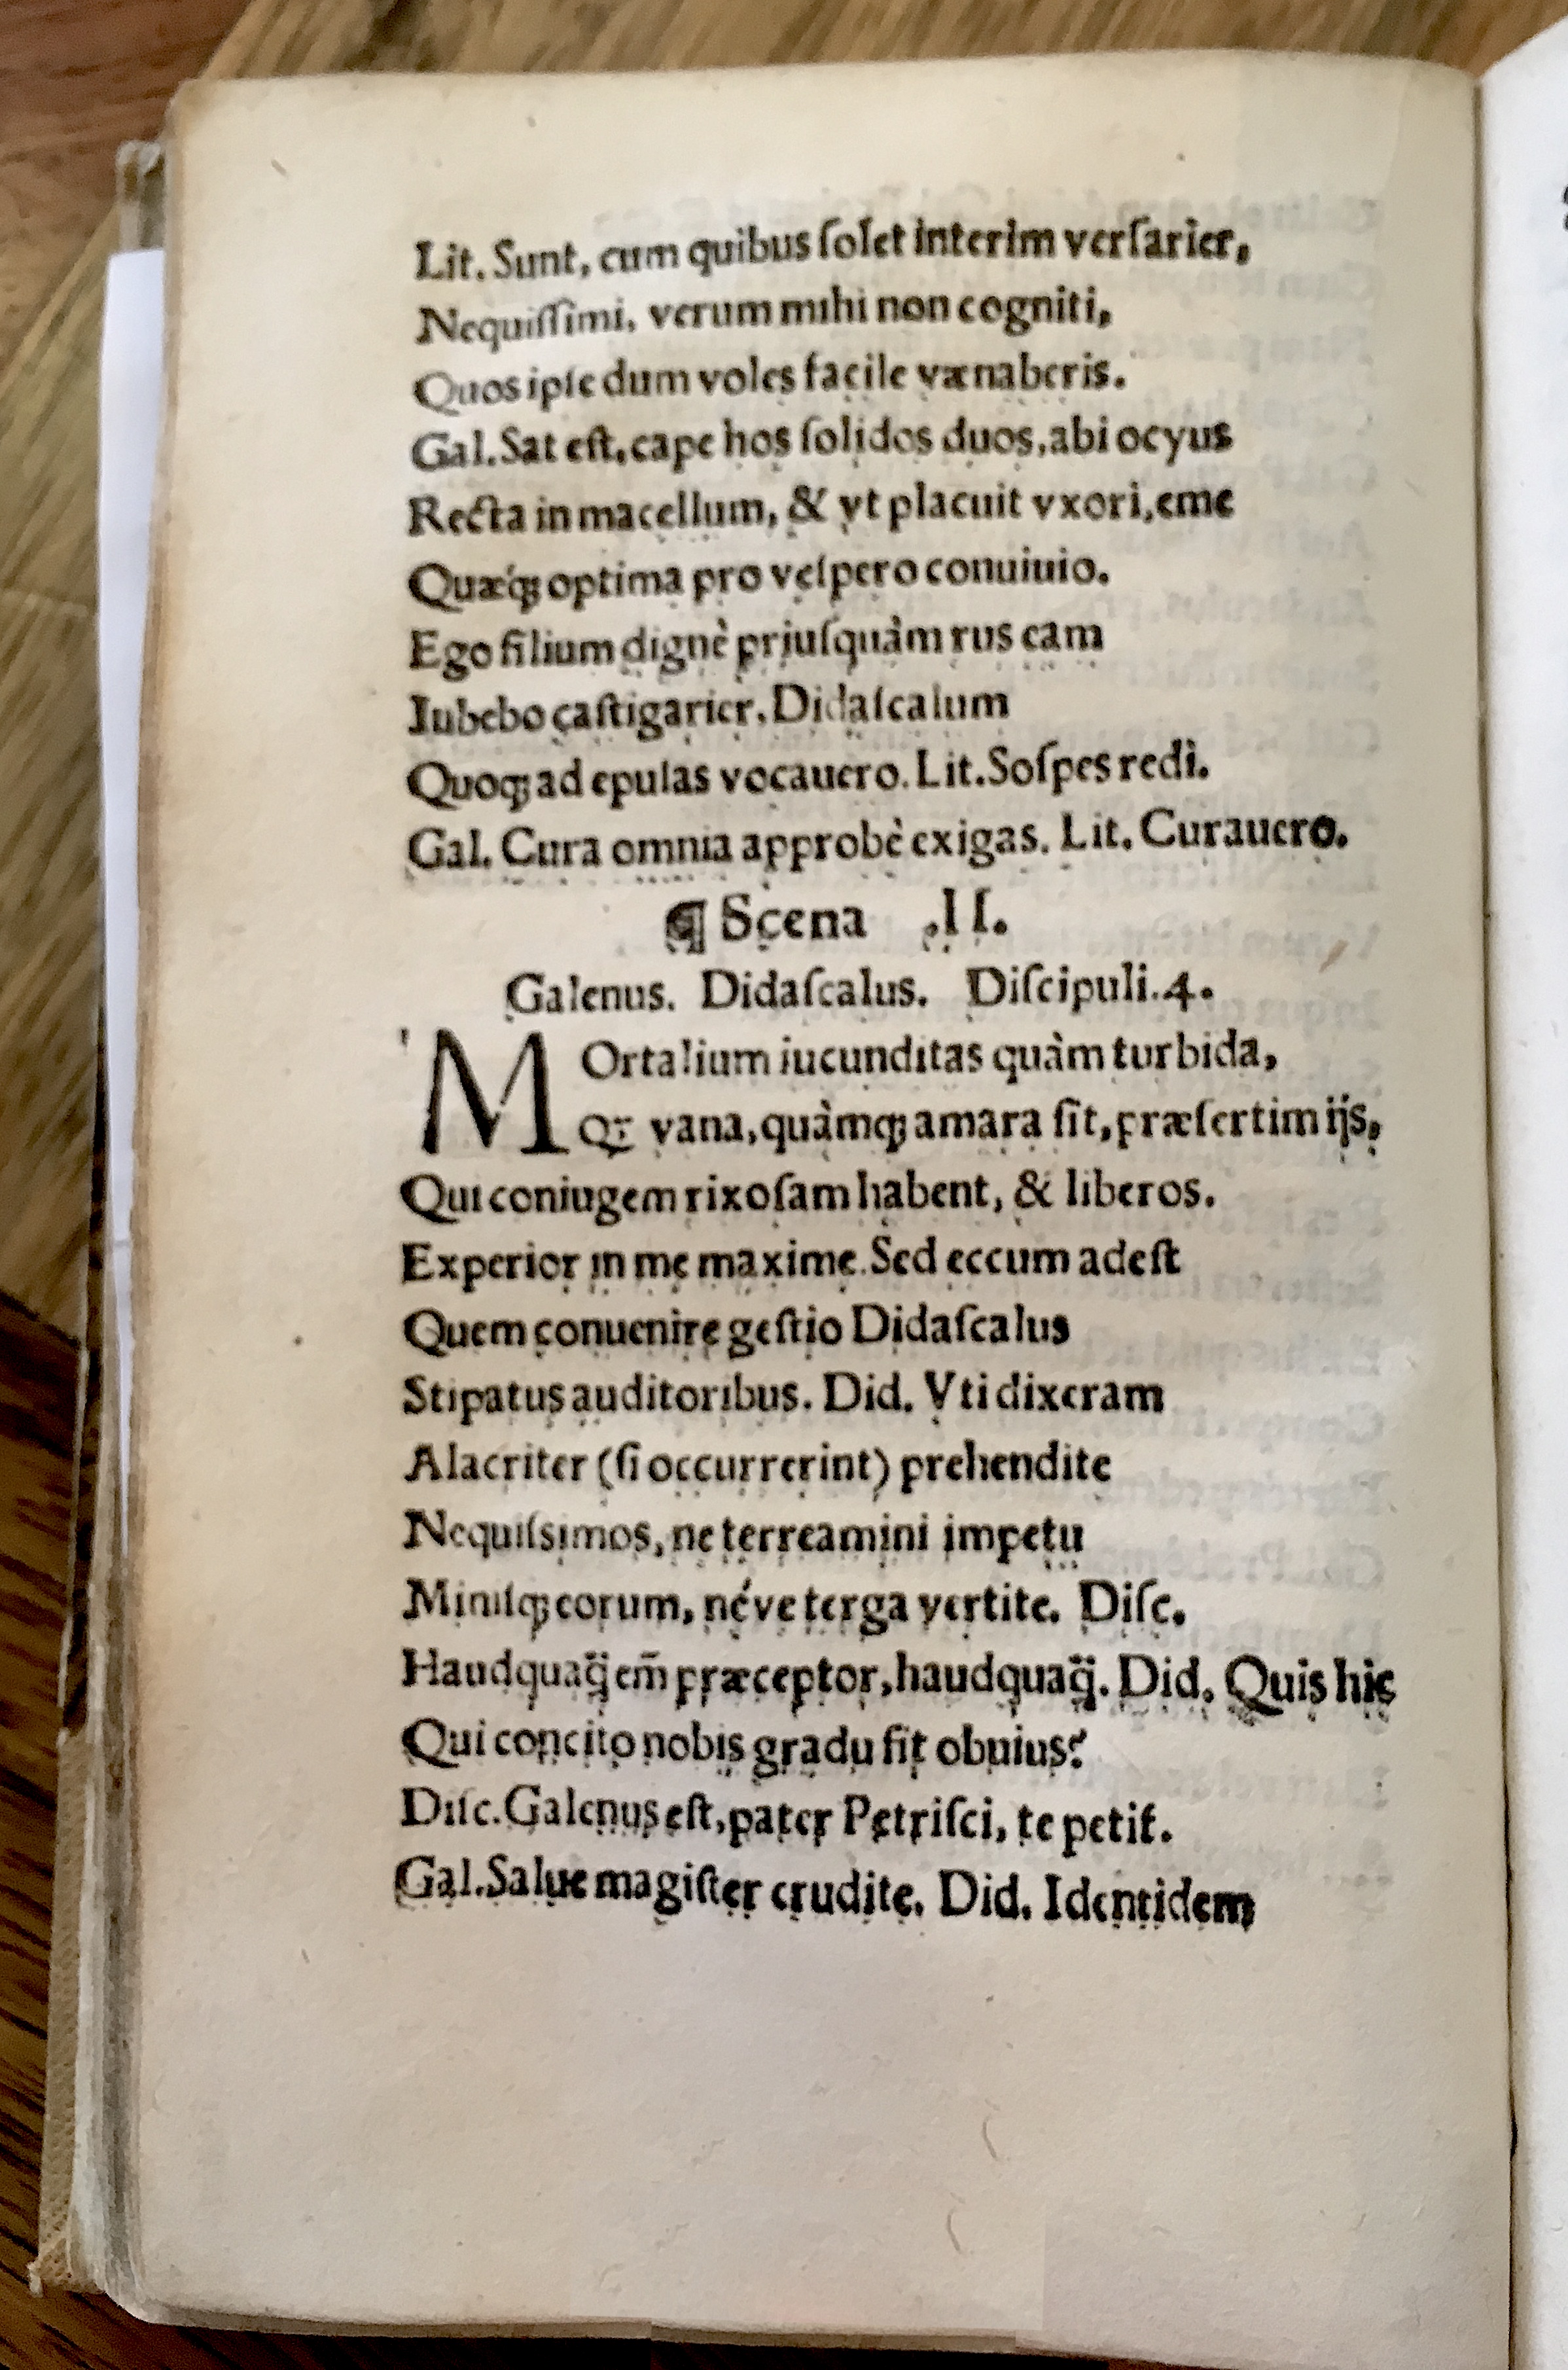 Lit. Sunt, cum quibus ſolet interim verſarier,
Nequiſſimi, verum mihi non cogniti,
Quos ipſe dum voles facile vænaberis.
Gal. Sat eſt, cape hos ſolidos duos, abi ocyus
Recta in macellum, & vt placuit vxori, eme
Quæq́; optima pro veſpero conuiuio.
Ego filium dignè priuſquàm rus eam
Iubebo caſtigarier. Didaſcalum
Quoq; ad epulas vocauero. Lit. Soſpes redi.
Gal. Cura omnia approbè exigas. Lit. Curauero.
¶ Scena .II.
Galenus. Didaſcalus. Diſcipuli.4.
MOrtalium iucunditas quàm turbida,
Qꝫ vana, quàmq; amara ſit, præſertim ijs,
Qui coniugem rixoſam habent, & liberos.
Experior in me maxime. Sed eccum adeſt
Quem conuenire geſtio Didaſcalus
Stipatus auditoribus. Did. Vti dixeram
Alacriter (ſi occurrerint) prehendite
Nequiſsimos, ne terreamini impetu
Miniſq; eorum, néve terga vertite. Diſc.
Haudquaq̃ em̃ præceptor, haudquaq̃. Did. Quis hic
Qui concito nobis gradu fit obuius?
Diſc. Galenus eſt, pater Petriſci, te petit.
Gal. Salue magiſter erudite. Did. Identidem